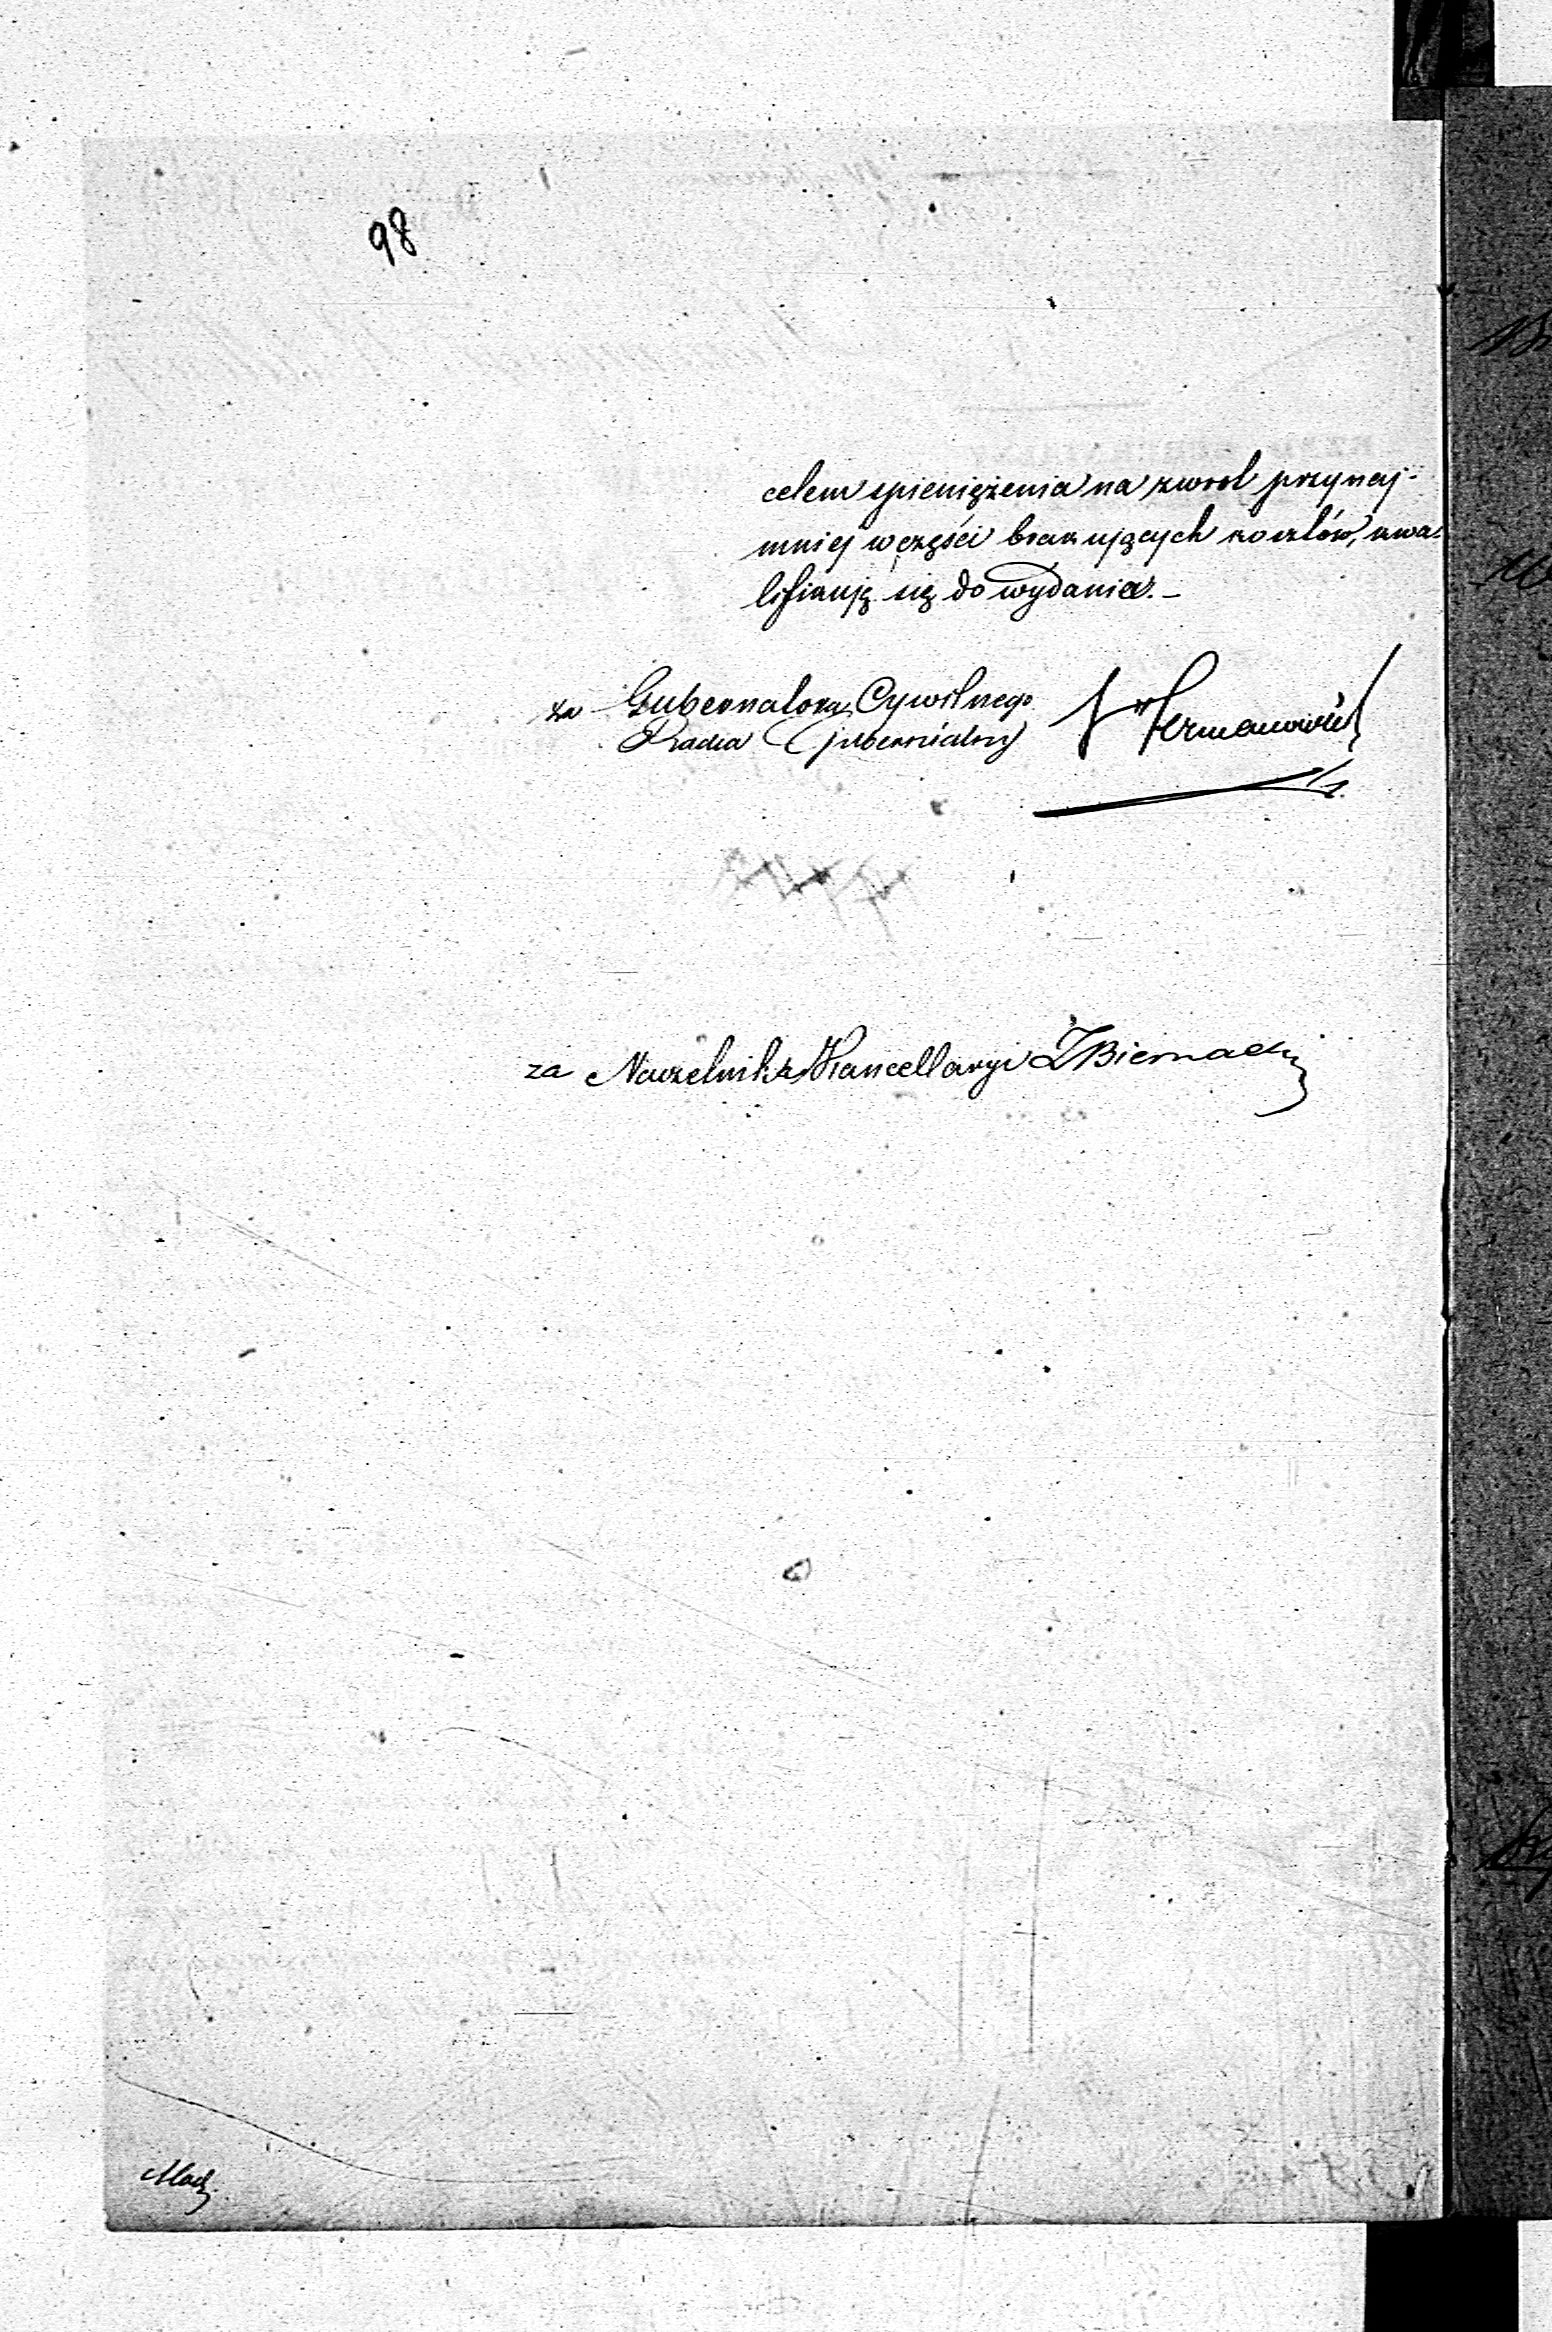 98
celem spieniężenia na zwrot przynaj-
mniej w części brakujących kosztów, kwa-
lifikują się do wydania. –
za Gubernatora Cywilnego
Radca Gubernialny Hermanowicz
za Naczelnika Kancellaryi Biernacki